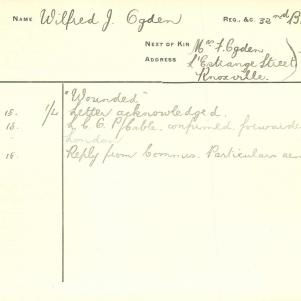 NAME Wilfred J. Ogden REG. &C. 32nd B
NEXT OF KIN Mrs F. Ogden
ADDRESS L'Estrange Street
Knoxville.
"Wounded"
15. 1/2 Letter acknowledged.
confirmed, forwarded
London
16. Reply from Commrs. Particulars